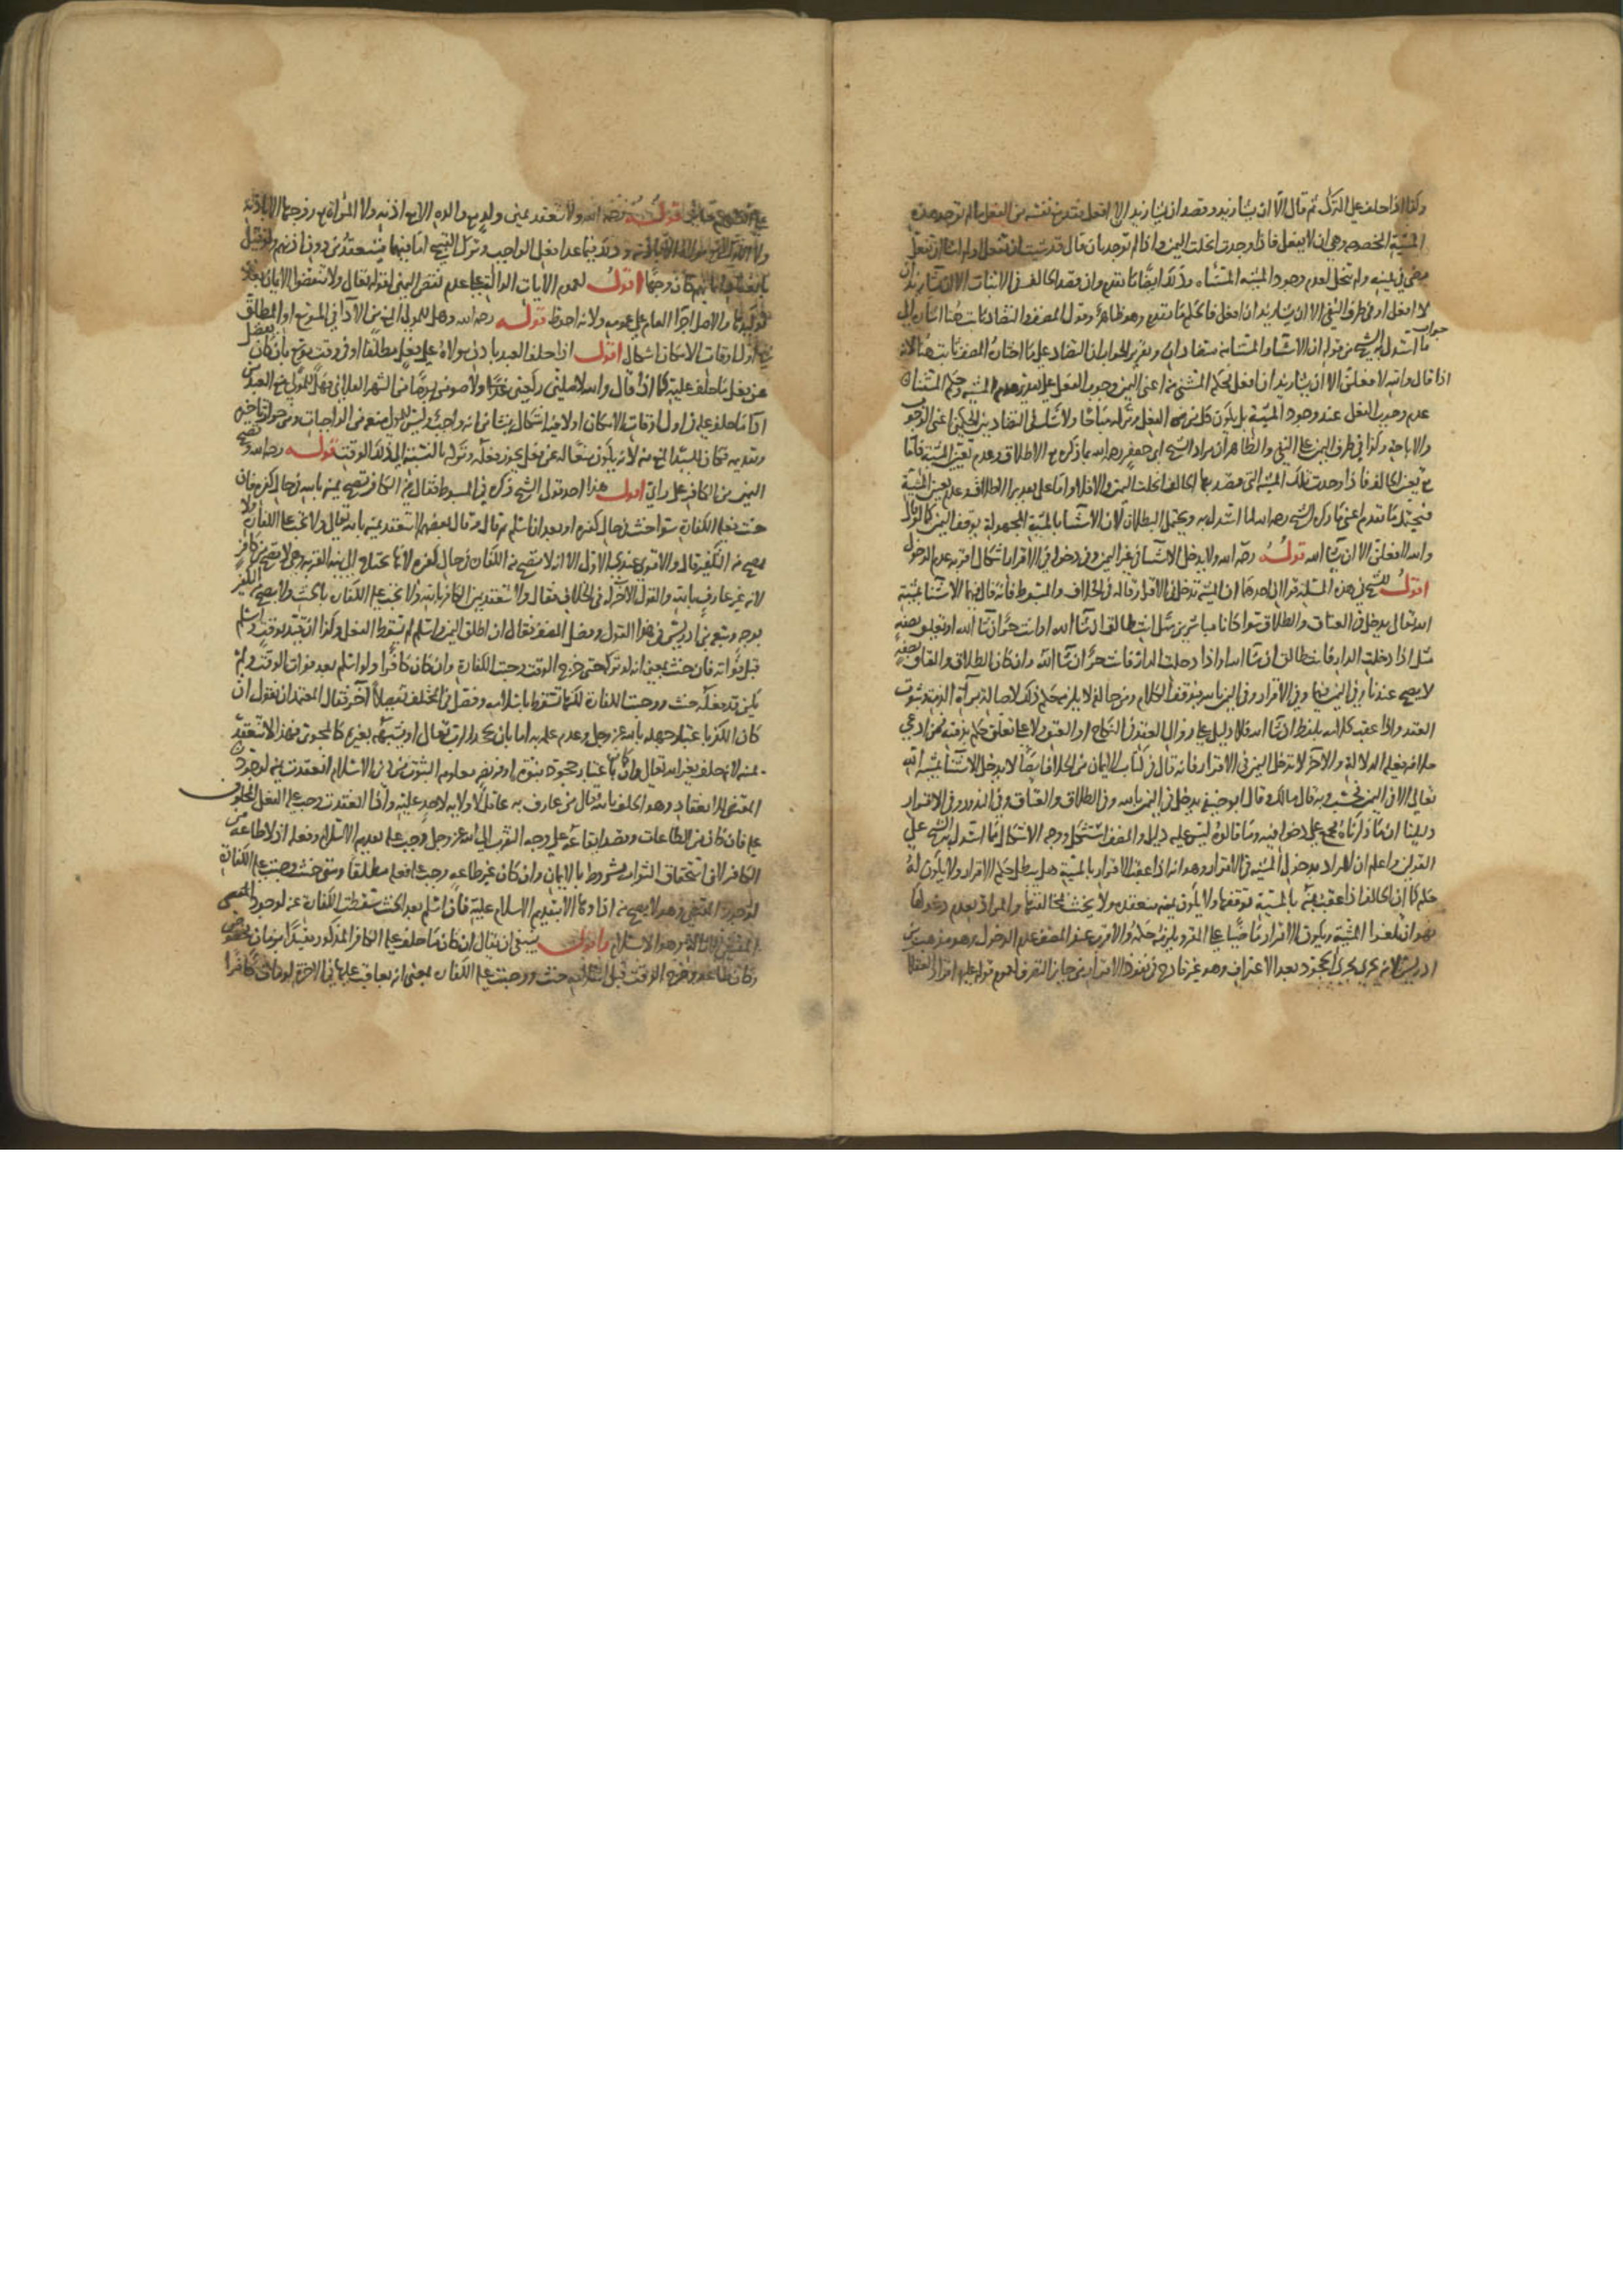 وكذا اذا حلف على الترك ثم قال الا ان يشاء زيد وقصد ان يشاء زيد ان افعل فقد منع نفسه من الفعل ما لم توجد هذه
المشية المخصوصة وهي ان لا يفعل فاذا وجدت انحلت اليمين واذا لم توجد بان قال قد شئت ان تفعل او لم اشا ان تفعل
فهي يمينه ولم تنحل لعدم وجود المشية المستثناه وكذلك ايضا ما تقدم وان قصد المخالف في الاثبات الا ان يشاء زيد ان
لا افعل او في طرف النفي الا ان يشاء زيد ان افعل فالحكم ما تقدم وهو ظاهر وقول المصنف التضاد ثابت هنا اشارة الى
جواب
ما استدل به الشيخ من قوله ان الاستثناء والمستثنى منه متضادان وتقرير الجواب ان التضاد على ما اختاره المصنف ثابت هنا لانه
اذا قال والله لا فعلن الا ان يشاء زيد ان افعل فحكم المستثنى منه اعني اليمين وجوب الفعل على تقدير عدم المشية وحكم المستثناه
عدم وجوب الفعل عند وجود المشية بل يكون كل من الفعل وتركه مباحا ولا شك في التضاد بين الحكمين اعني الوجوب
والاباحة وكذا في طرف اليمين على النفي والظاهر ان مراد الشيخ ابي جعفر رحمه الله بما ذكره مع الاطلاق وعدم تعيين المشية فاما
مع تعيين الحالف فاذا وجدت تلك المشية التي قصد بها الحالف انحلت اليمين والا فلا واما على تقدير الاطلاق وعدم تعيين المشية
فيحتمل ما تقدم اعني ما ذكره الشيخ رحمه الله لما استدل به ويحتمل البطلان لان الاستثناء بالمشية المجهولة يوقف اليمين كما لو قال
والله لافعلن الا ان يشاء الله قوله رحمه الله ولا يدخل الاستثناء في غير اليمين وفي دخوله في الاقرار اشكال اقربه عدم الدخول
اقول للشيخ في هذه المسئلة قولان احدهما ان المشية تدخل في الاقرار قاله في الخلاف والمبسوط فانه قال فيهما الاستثناء بمشية
الله تعالى يدخل في العتاق والطلاق سوا كانا مباشرين مثل انت طالق ان شاء الله او انت حر ان شاء الله او تعليق بصفة
مثل اذا دخلت الدار فانت طالق ان شاء الله او اذا دخلت الدار فانت حر ان شاء الله وان كان الطلاق والعتاق بصفة
لا يصح عندنا وفي اليمين بهما وفي الاقرار وفي اليمين بالله فيوقف الكلام ومن خالفه لا يلزمه حكم ذلك لاصالة براة الذمة وثبوت
العقد واذا عقب كلامه بلفظ ان شاء الله فلا دليل على زوال العقد في النكاح او العتق ولا على تعلق حكم بذمته فمن ادعى
خلافه فعليه الدلالة والاخر لا تدخل اليمين في الاقرار فانه قال في كتاب الايمان من الخلاف ايضا لا يدخل الاستثناء بمشية الله
تعالى الا في اليمين فحسب وبه قال مالك وقال ابو حنيفة يدخل في اليمين بالله وفي الطلاق والعتاق وفي النذور وفي الاقرار
دليلنا ان ما ذكرناه مجمع على دخولها فيه وما قالوه ليس عليه دليل والمصنف استشكل ووجه الاشكال ما استدل به الشيخ على
القولين واعلم ان المراد بدخول المشية في الاقرار وهو انه اذا عقب الاقرار بالمشية هل يبطل حكم الاقرار ولا يكون له
حكم كما ان الحالف اذا عقب يمينه بالمشية توقفها ولا يكون يمينه منعقدة ولا يحنث بمخالفتها والمراد بعدم دخولها
هو ان تلغو المشية ويكون الاقرار ماضيا على المقر ويلزمه حكمه والاقرب عند المصنف عدم الدخول وهو مذهب ابن
ادريس لانه يجري مجرى الجحود بعد الاعتراف وهو غير قادح في نفوذ الاقرار من جايز التصرف لعموم قوله عليه السلام اقرار العقلا
على انفسهم جائز قوله رحمه الله ولا تنعقد يمين ولد مع والده الا مع اذنه ولا المراة مع زوجها الا باذنه
ولا المملوك مع مولاه الا باذنه وذلك فيما عدا فعل الواجب وترك القبيح اما فيهما فتنعقد من دون اذنهم ولو قيل
بانعقاد ايمانهم كان وجها اقول لعموم الايات الدالة على عدم نقض اليمين لقوله تعالى ولا تنقضوا الايمان بعد
توكيدها والاصل اجرا العام على عمومه ولانه احوط قوله رحمه الله وهل للمولى المنع من الادا في الموسع او المطلق
في اول اوقات الامكان اشكال اقول اذا حلف العبد باذن مولاه على فعل مطلقا او في وقت موسع بان كان يفضل
عن فعل ما حلف عليه كما اذا قال والله لاصلين ركعتين غدا ولاصومن يوما من الشهر الفلاني فهل للمولى منع العبد من
ادا ما حلف عليه في اول اوقات الامكان او لا فيه اشكال ينشا من انه واجب وليس للمولى منعه من الواجبات ومن جواز تاخيره
وتقديمه فكان للسيد المنع منه لانه يكون منعا له عن فعل يجوز فعله وتركه بالنسبة الى ذلك الوقت قوله رحمه الله وتصح
اليمين من الكافر على راي اقول هذا احد قولي الشيخ ذكره في المبسوط فقال فيه الكافر تصح يمينه بالله في حال كفره فان
حنث فعليه الكفارة سوا حنث في حال كفره او بعد ان اسلم ثم قال وقال بعضهم لا تنعقد يمينه بالله تعالى ولا تجب عليه الكفارة ولا
يصح منه التكفير قال والاقوى عندي الاول الا انه لا تصح منه الكفارة في حال كفره لانها تحتاج الى نية القربة وهي لا تصح من كافر
لانه غير عارف بالله والقول الاخر له في الخلاف فقال ولا تنعقد يمين الكافر بالله ولا تجب عليه الكفارة بالحنث ولا يصح منه التكفير
بوجه وتبعه ابن ادريس في هذا القول وفصل المصنف فقال ان اطلق اليمين واسلم لم يسقط الفعل وكذا ان قيده بوقت واسلم
قبل فواته فان حنث بمعنى انه لو تركه حتى خرج الوقت وجبت الكفارة وان كان كافرا ولو اسلم بعد فوات الوقت ولم
يكن قد فعله حنث ووجبت الكفارة لكنها تسقط باسلامه وفصل في المختلف تفصيلا اخر فقال المعتمد ان نقول ان
كان الكفر باعتبار جهله بالله عز وجل وعدم علمه به اما بان يجحد الرب تعالى او يشبهه بغيره كالمجوسي فهذا لا تنعقد
يمينه لانه حلف بغير الله تعالى وان كان باعتبار جحوده بنبوة او فريضة معلومة الثبوت من دين الاسلام انعقدت يمينه لوجود
المقتضي للانعقاد وهو الحلف بالله تعالى من عارف به عاقلا لا ولاية لاحد عليه واذا انعقدت وجب عليه الفعل المحلوف
عليه فان كان من الطاعات وقصد ايقاعه على وجه التقرب الى الله عز وجل وجب عليه تقديم الاسلام وفعله اذ لا طاعة من
الكافر لان استحقاق الثواب مشروط بالايمان وان كان غير طاعة وجب فعله مطلقا ومتى حنث وجبت عليه الكفارة
لوجود المقتضي وهو لا يصح منه اداوها الا بتقديم الاسلام عليه فاذا اسلم بعد الحنث سقطت الكفارة عنه لوجود المقتضي
وهو الاسلام واقول ينبغي ان يقال ان كان ما حلف عليه الكافر المذكور مقيدا بزمان مخصوص
وكان طاعة وخرج الوقت قبل اسلامه حنث ووجبت عليه الكفارة بمعنى انه يعاقب عليها في الاخرة لو مات كافرا